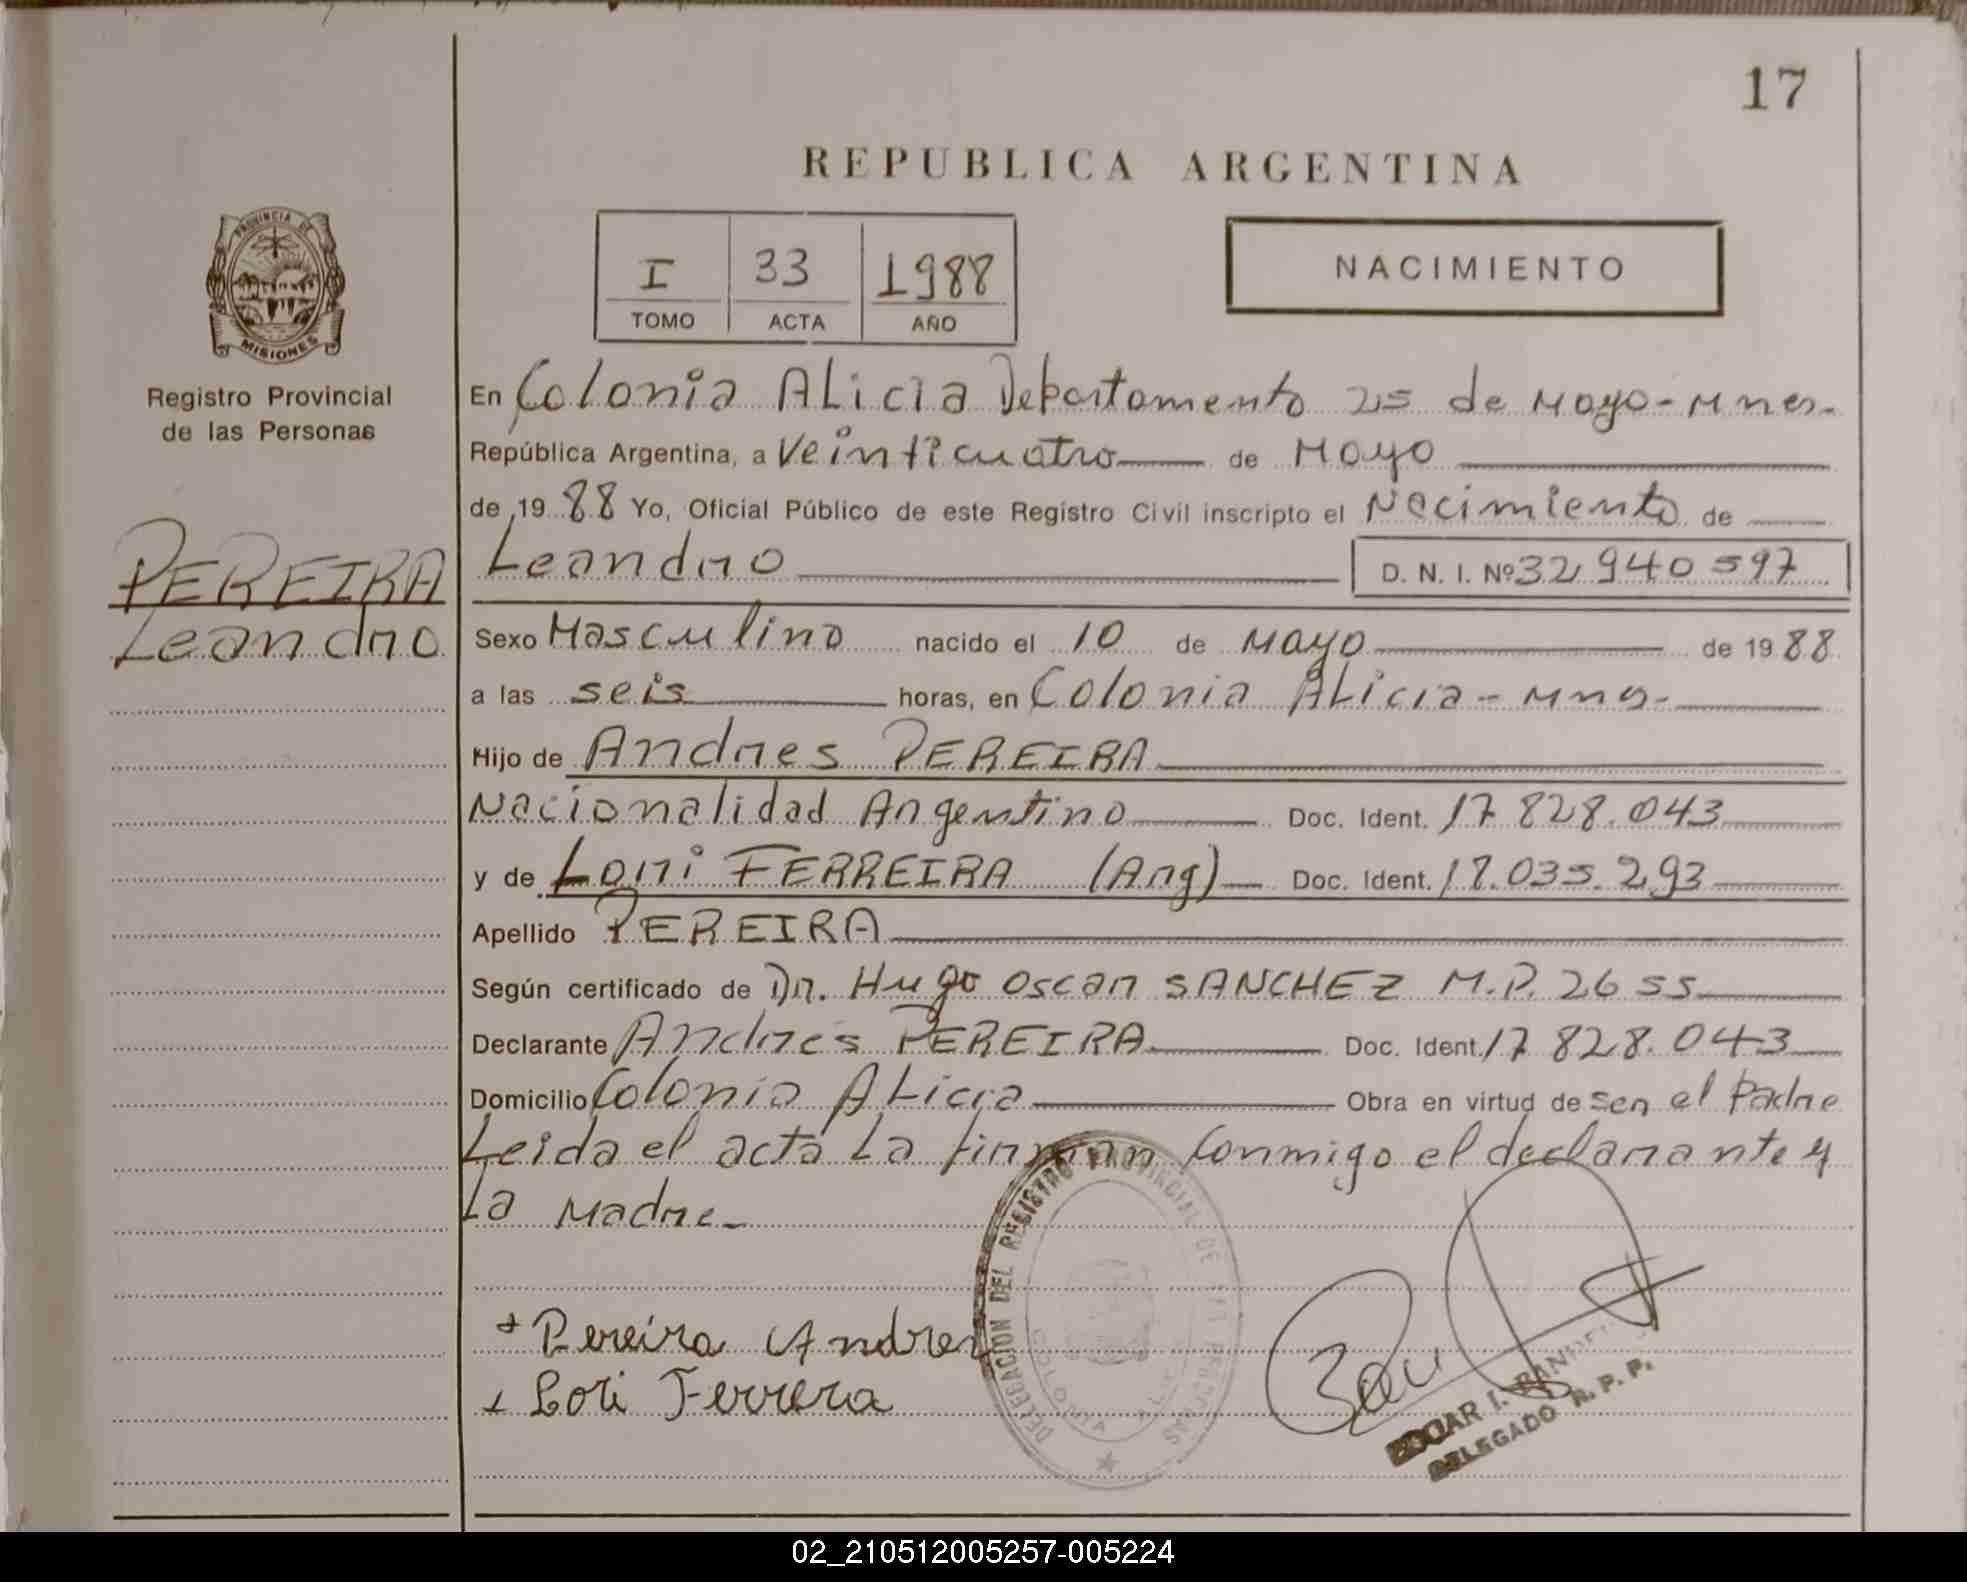 17
REPUBLICA ARGENTINA
PROVINCIA DE
MISIONES
Registro Provincial
de las Personas
PEREIRA
Leandro
I 33 1988
TOMO ACTA AÑO
NACIMIENTO
En Colonia ALicia Departamento 25 de Mayo-Mnes.
República Argentina, a Veinticuatro de Mayo
de 19 88 Yo, Oficial Público de este Registro Civil inscripto el Nacimiento de
Leandro D. N. I. Nº 32 940 597
Sexo Masculino nacido el 10 de Mayo de 19 88
a las seis horas, en Colonia ALicia-Mnes-
Hijo de Andres PEREIRA
Nacionalidad Argentino Doc. Ident. 17 828.043
y de Lori FERREIRA (Arg) Doc. Ident. 18.035.293
Apellido PEREIRA
Según certificado de Dr. Hugo Oscar SANCHEZ M.P. 2655
Declarante Andres PEREIRA Doc. Ident. 17 828.043
Domicilio Colonia ALicia Obra en virtud de ser el Padre
Leida el acta La firman Conmigo el declarante y
La Madre-
DELEGACION DEL REGISTRO PROVINCIAL DE LAS PERSONAS
COLONIA
Pereira Andres
Lori Ferrera
EDGAR I.
DELEGADO R. P. P.
02_210512005257-005224